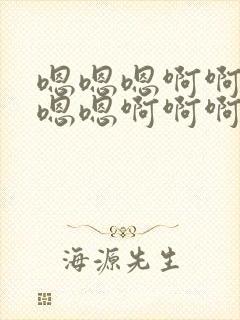 嗯嗯嗯啊啊
嗯嗯啊啊啊
海源先生